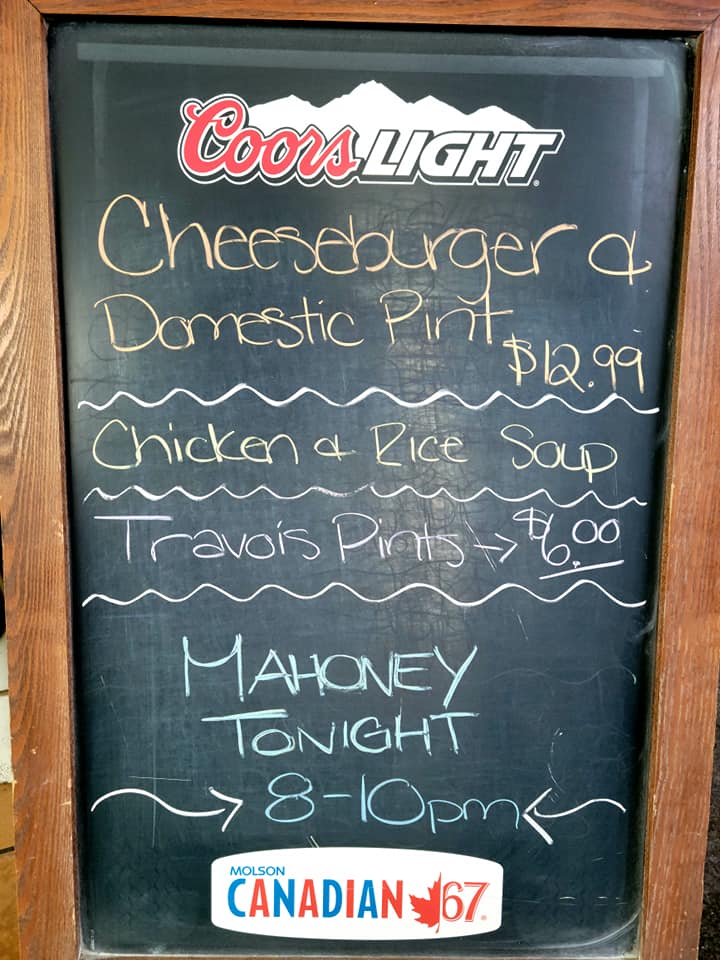 Coors LIGHT
Cheeseburger &
Domestic Pint
$12.99
Chicken & Rice Soup
Travois Pints → $6.00
MAHONEY
TONIGHT
8-10pm
MOLSON
CANADIAN 67